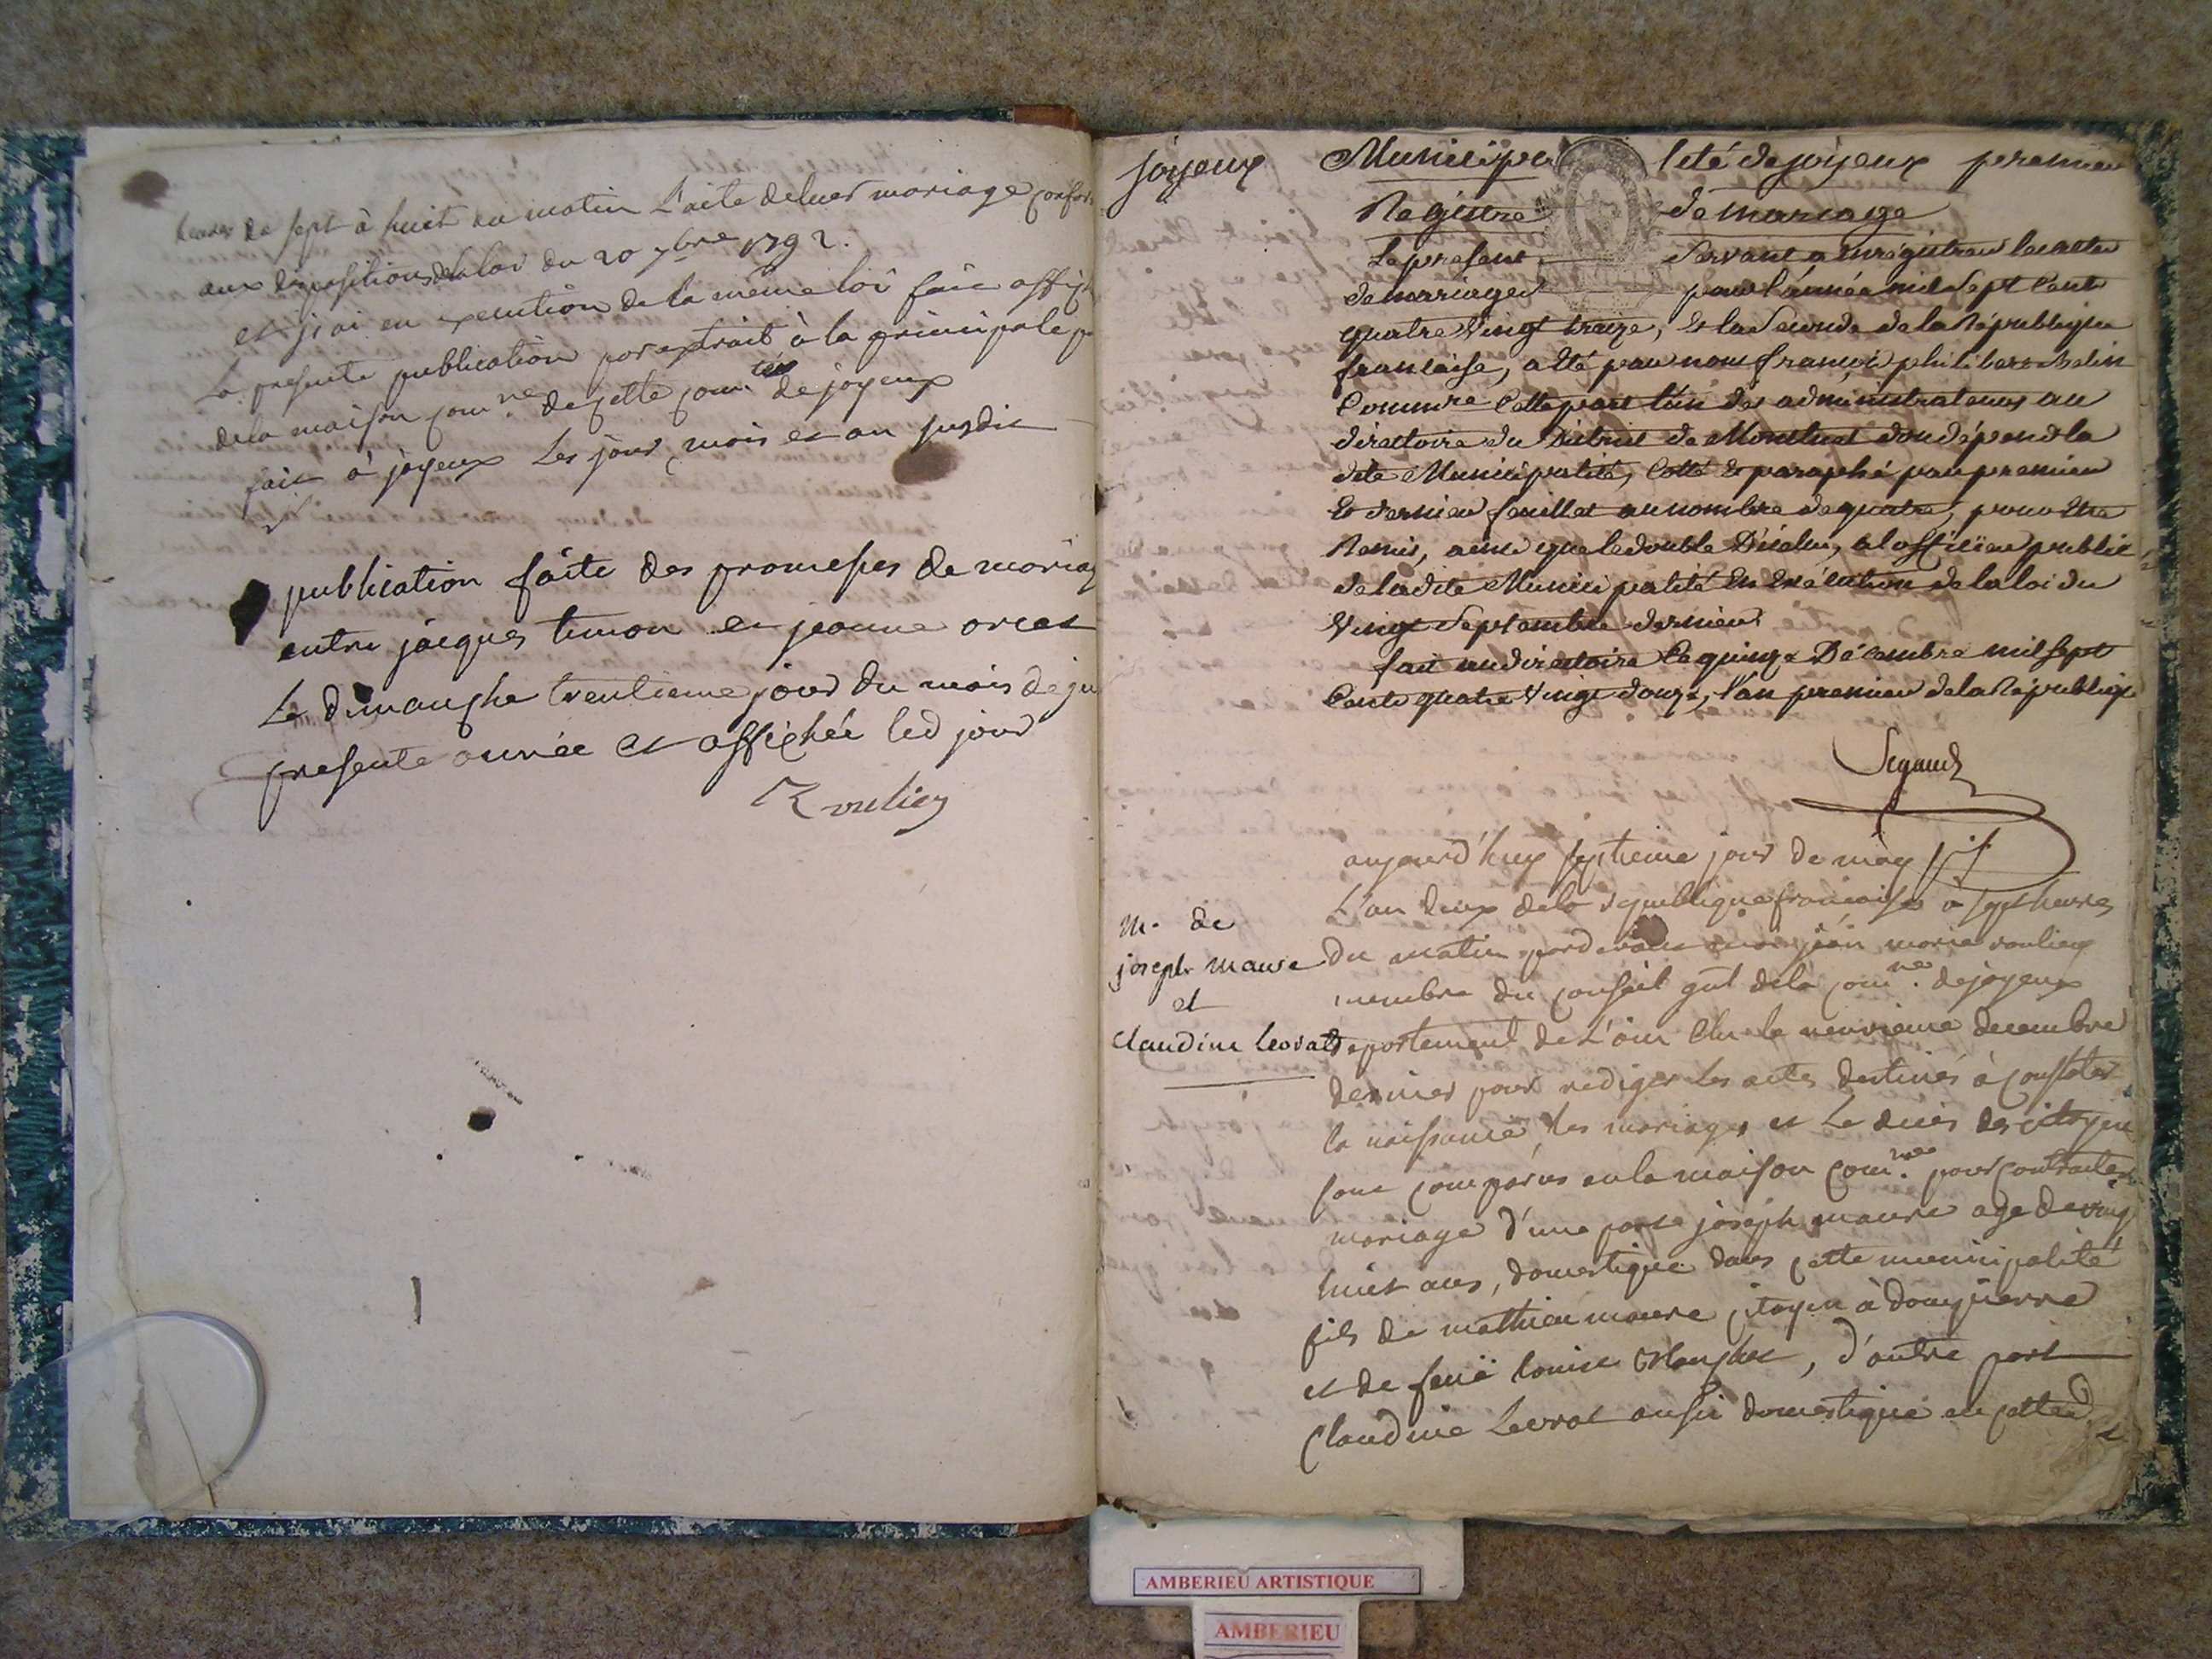 heures de sept à huit du matin L'acte de leur mariage confor
aux dispositions de la loi du 20 7bre 1792.
et j'ai en execution de la meme loi fait affich
La presente publication par extrait à la principale p
de la maison comne. de cette comne de joyeux
fait à joyeux Les jour, mois et an susdit
publication faite des promesses de mariag
entre jacques timon et jeanne orcet
Le dimanche trentieme jour du mois de ju
presente année et affichée led jour
Roulien
joyeux
Municipa lité de joyeux premier
Registre de mariage
Le present servant a enregistrer les actes
de mariages pour l'année mil sept cent
quatre vingt treize, & la seconde de la République
francaise, a été par nous françois philibert
Commre cette part l'un des administrateurs au
directoire du district de Montluel dont dépend la
dite Municipalité, Cotté & paraphé par premier
& dernier feuillet au nombre de quatre, pour être
Remis, ainsi que le double D'icelui, a l'officier public
de ladite Municipalité En Exécution de la loi du
Vingt Septembre dernier
fait au directoire le quinze Décembre mil sept
Cent quatre vingt douze, l'an premier de la Républiq
Segaud
aujourd'huy septieme jour de may
L'an deux de la republique francaise à sept heures
du matin pardevant moi jean marie roulien
membre du conseil gnl de la comne. de joyeux
departement de L'ain elu le neuvieme decembre
dernier pour rediger les actes destinés à constater
la naissance, les mariages et le deces des citoyens
sont comparus en la maison comne. pour contracter
mariage d'une part joseph maure age de ving
huit ans, domestique dans cette municipalité
fils de mathieu maure citoyen à dompierre
et de feüe louise, d'autre part
Claudine Levrat aussi domestique en cette
M. de
joseph maure
et
Claudine Levrat
AMBERIEU ARTISTIQUE
AMBERIEU